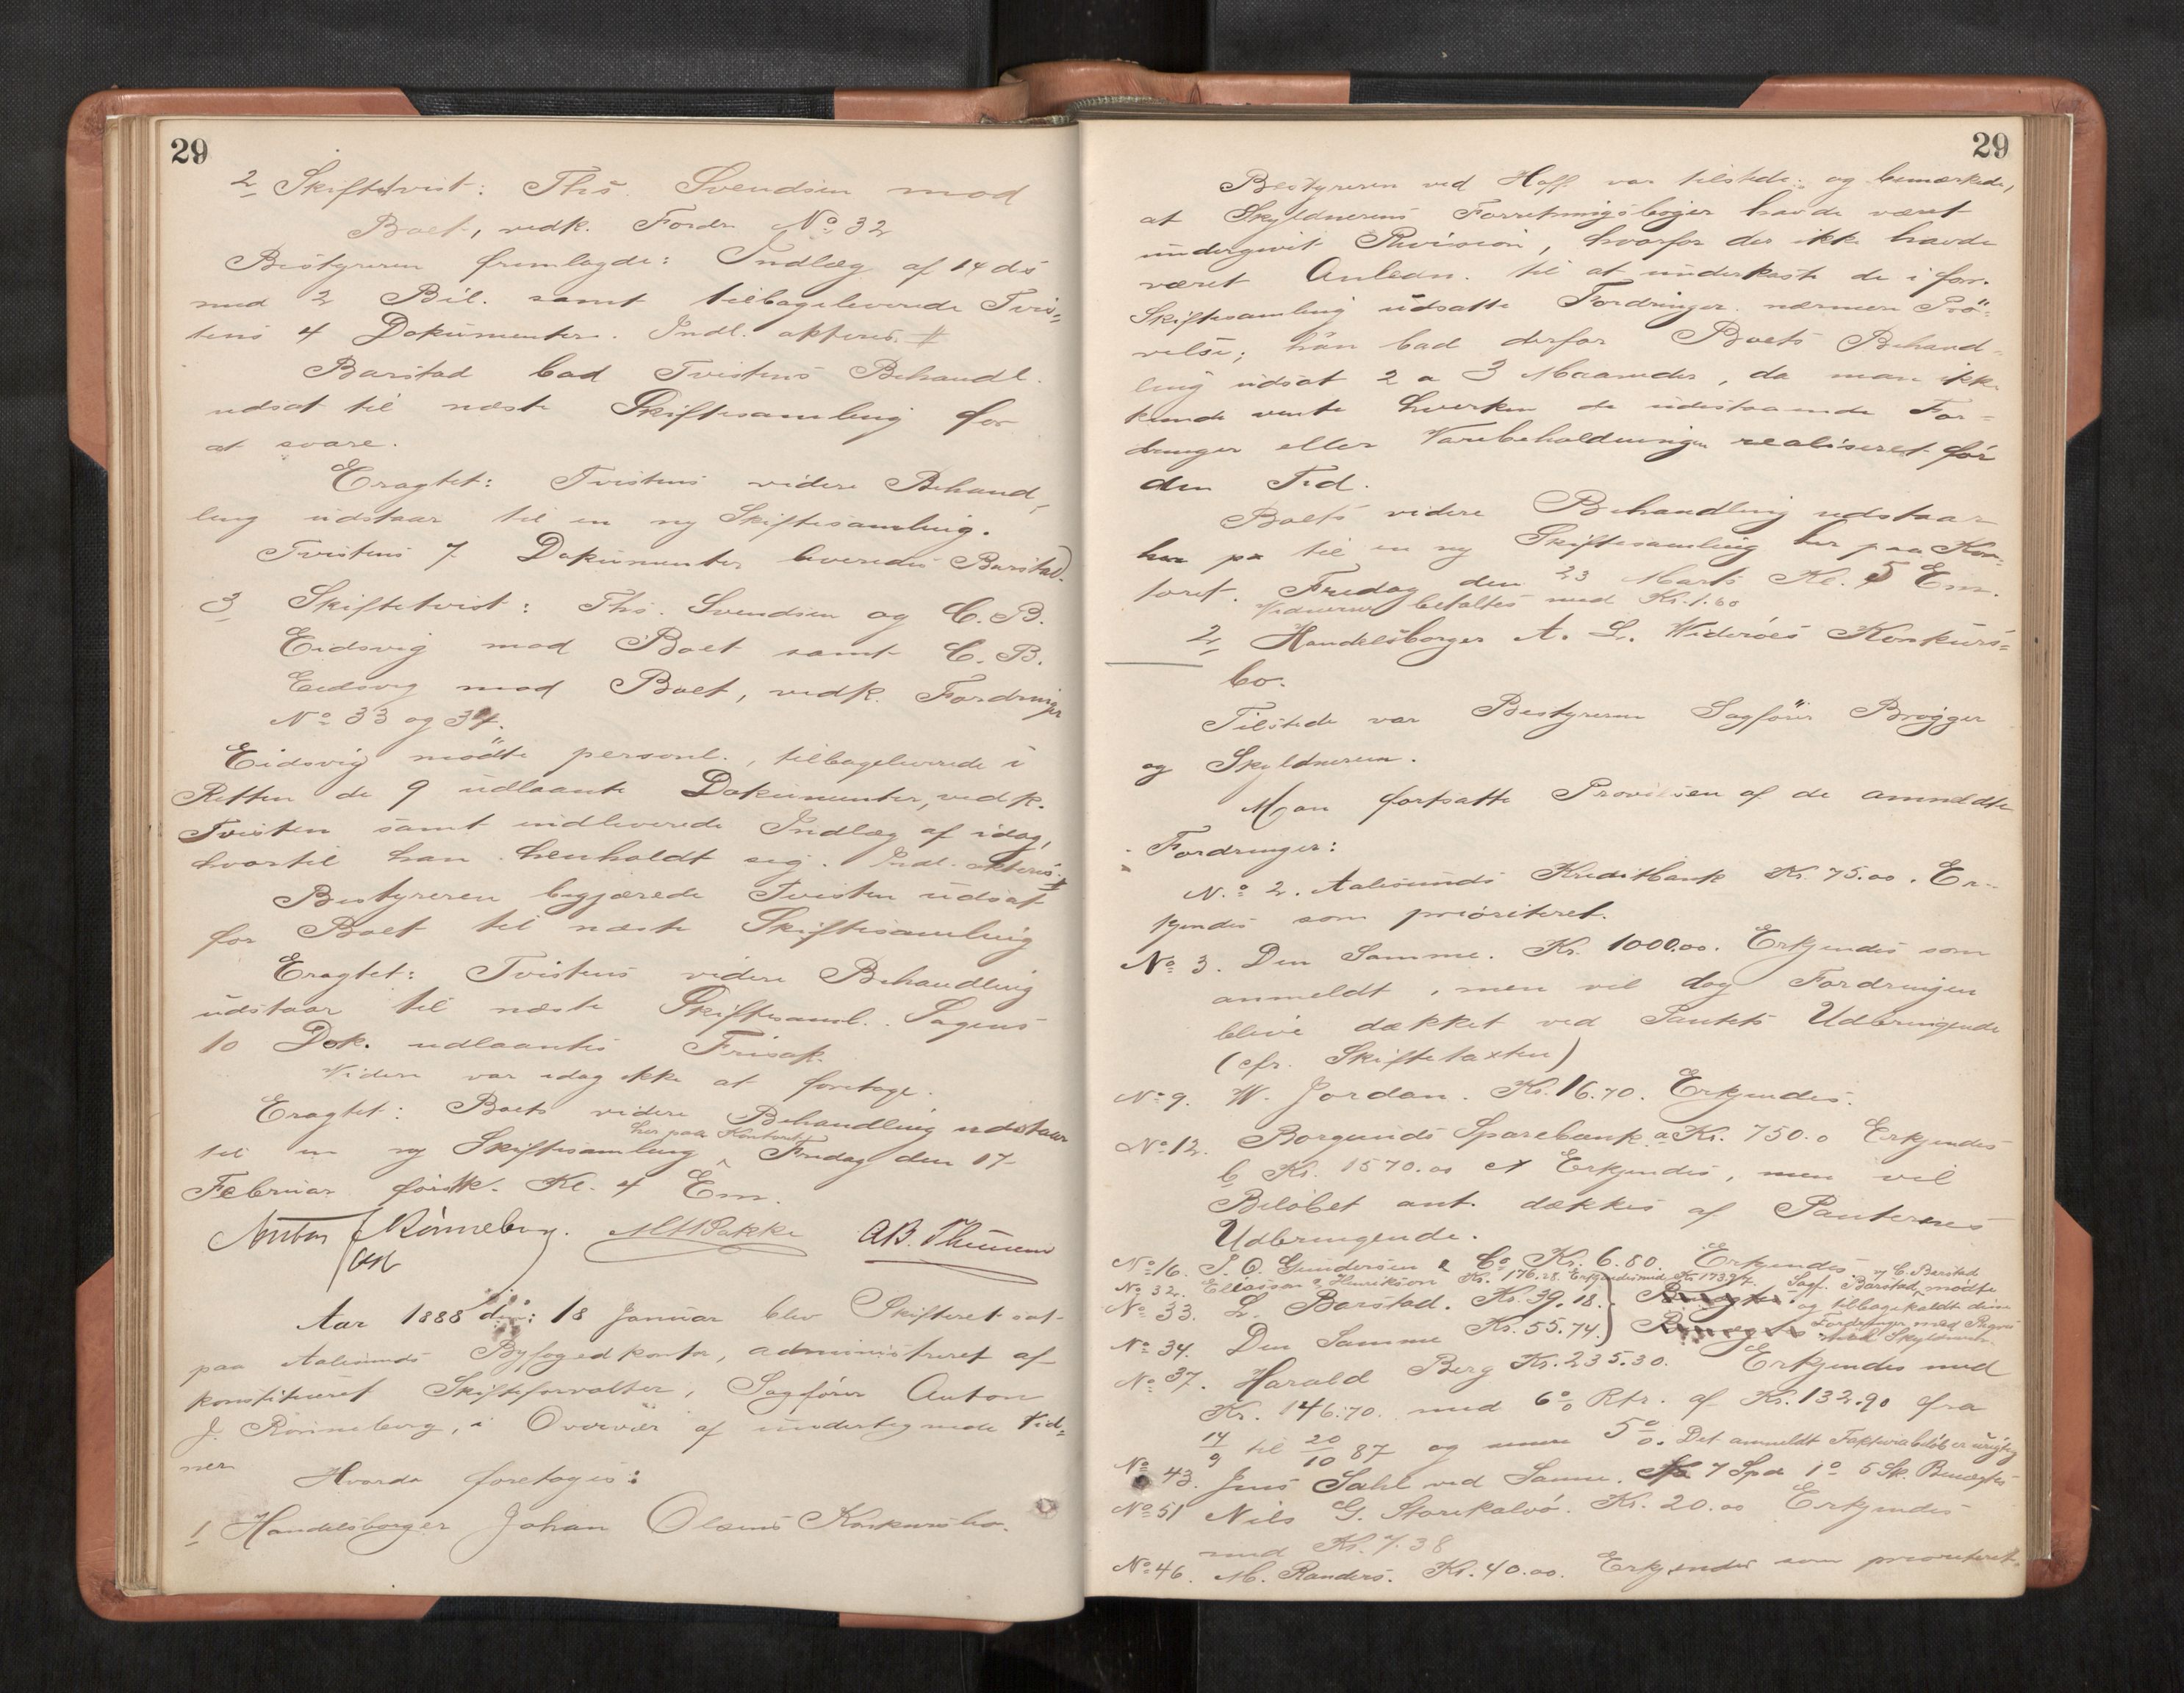 29
2 Skiftetvist: Ths. Svendsen mod
Boet, vedk. Fordr. No 32
Bestyreren fremlagde: Indlæg af 14 ds
med 2 Bil. samt tilbageleverede Tvis=
tens 4 Dokumenter. Indl. akteres. #
Barstad bad Tvistens Behandl.
udsat til næste Skiftesamling for
at svare.
Eragtet: Tvistens videre Behand-
ling udstaar til en ny Skiftesamling.
Tvistens 7 Dokumenter leveredes Barstad.
3 Skiftetvist: Ths. Svendsen og C. B.
Eidsvig mod Boet samt C. B.
Eidsvig mod Boet, vedk. Fordringer
No 33 og 34.
Eidsvig mødte personl., tilbageleverede i
Retten de 9 udlaante Dokumenter, vedk.
Tvisten samt indleverede Indlæg af idag,
hvortil han henholdt sig. Indl. akteres. #
Bestyreren begjærede Tvisten udsat
for Boet til næste Skiftesamling
Eragtet: Tvistens videre Behandling
udstaar til næste Skiftesaml. Sagens
10 Dok. udlaantes Frisak.
Videre var idag ikke at foretage.
Eragtet: Boets videre Behandling udstaar
her paa Kontoret
til en ny Skiftesamling Fredag den 17
Februar førstk. Kl. 4 Em.
Anton J Rønneberg. A B. Thunem
cst
Aar 1888 den: 18 Januar blev Skifteret sat
paa Aalesunds Byfogedkontor, administreret af
konstitueret Skifteforvalter, Sagfører Anton
J. Rønneberg, i Overvær af undertegnede Vid=
ner
Hvorda foretoges:
1 Handelsborger Johan Olsens Konkursbo.
29
Bestyreren ved Hoff var tilstede og bemærkede,
at Skyldnerens Forretningsbøger havde været
undergivet Revision, hvorfor der ikke havde
været Anledn. til at underkaste de i forr.
Skiftesamling udsatte Fordringer nærmere Prö=
velse; han bad derfor Boets Behand=
ling udsat 2 a 3 Maaneder, da man ikke
kunde vente hverken de udestaaende For=
dringer eller Varebeholdningen realiseret før
den Tid.
Boets videre Behandling udstaar
her pa til en ny Skiftesamling her paa Kon-
toret. Fredag den 23 Marts Kl. 5 Em.
Vidnerne betaltes med Kr. 1.60
2 Handelsborger A. L. Widerøes Konkurs=
bo.
Tilstede var Bestyreren Sagfører Brøgger
og Skyldneren.
Man fortsatte Prøvelsen af de anmeldte
Fordringer:
No 2. Aalesunds Kreditbank Kr. 75.00. Er-
kjendes som prioriteret.
No 3. Den Samme. Kr. 1000.00. Erkjendes som
anmeldt, men vil dog Fordringen
blive dækket ved Pantets Udbringende
(cfr. Skiftetaxten)
No 9. W. Jordan. Kr. 16.70. Erkjendes.
No 12. Borgunds Sparebank a Kr. 750.0 Erkjendes
b Kr. 1570.00 Erkjendes, men vil
Beløbet ant. dækkes af Panternes
Udbringende.
No 16. J. O. Gundersen & Co Kr. 6.80. Erkjendes.
No 32. Eliassen & Henriksen Kr. 176.28. Erkjendes med Kr. 173.97. Sagf. Barstad mødte
No 33. L. Barstad. Kr. 39.18. Benægtes og tilbagekaldt disse
No 34. Den Samme Kr. 55.74. Benægtes Fordringer med Regres mod Skyldneren.
No 37. Harald Berg Kr. 235.30. Erkjendes med
Kr. 146.70. med 6% Rtr. af Kr. 132.90 fra
14/9 til 20/10 87 og senere 5%. Det anmeldt Fakturabeløb er urigtig
No 43. Jens Sahl ved Samme. 7 Spd 1o 5 Sk. Benægtes
No 51 Nils G. Storekalvø. Kr. 20.00 Erkjendes
med Kr. 7.38
No 46. M. Randers. Kr. 40.00. Erkjendes som prioriteret.